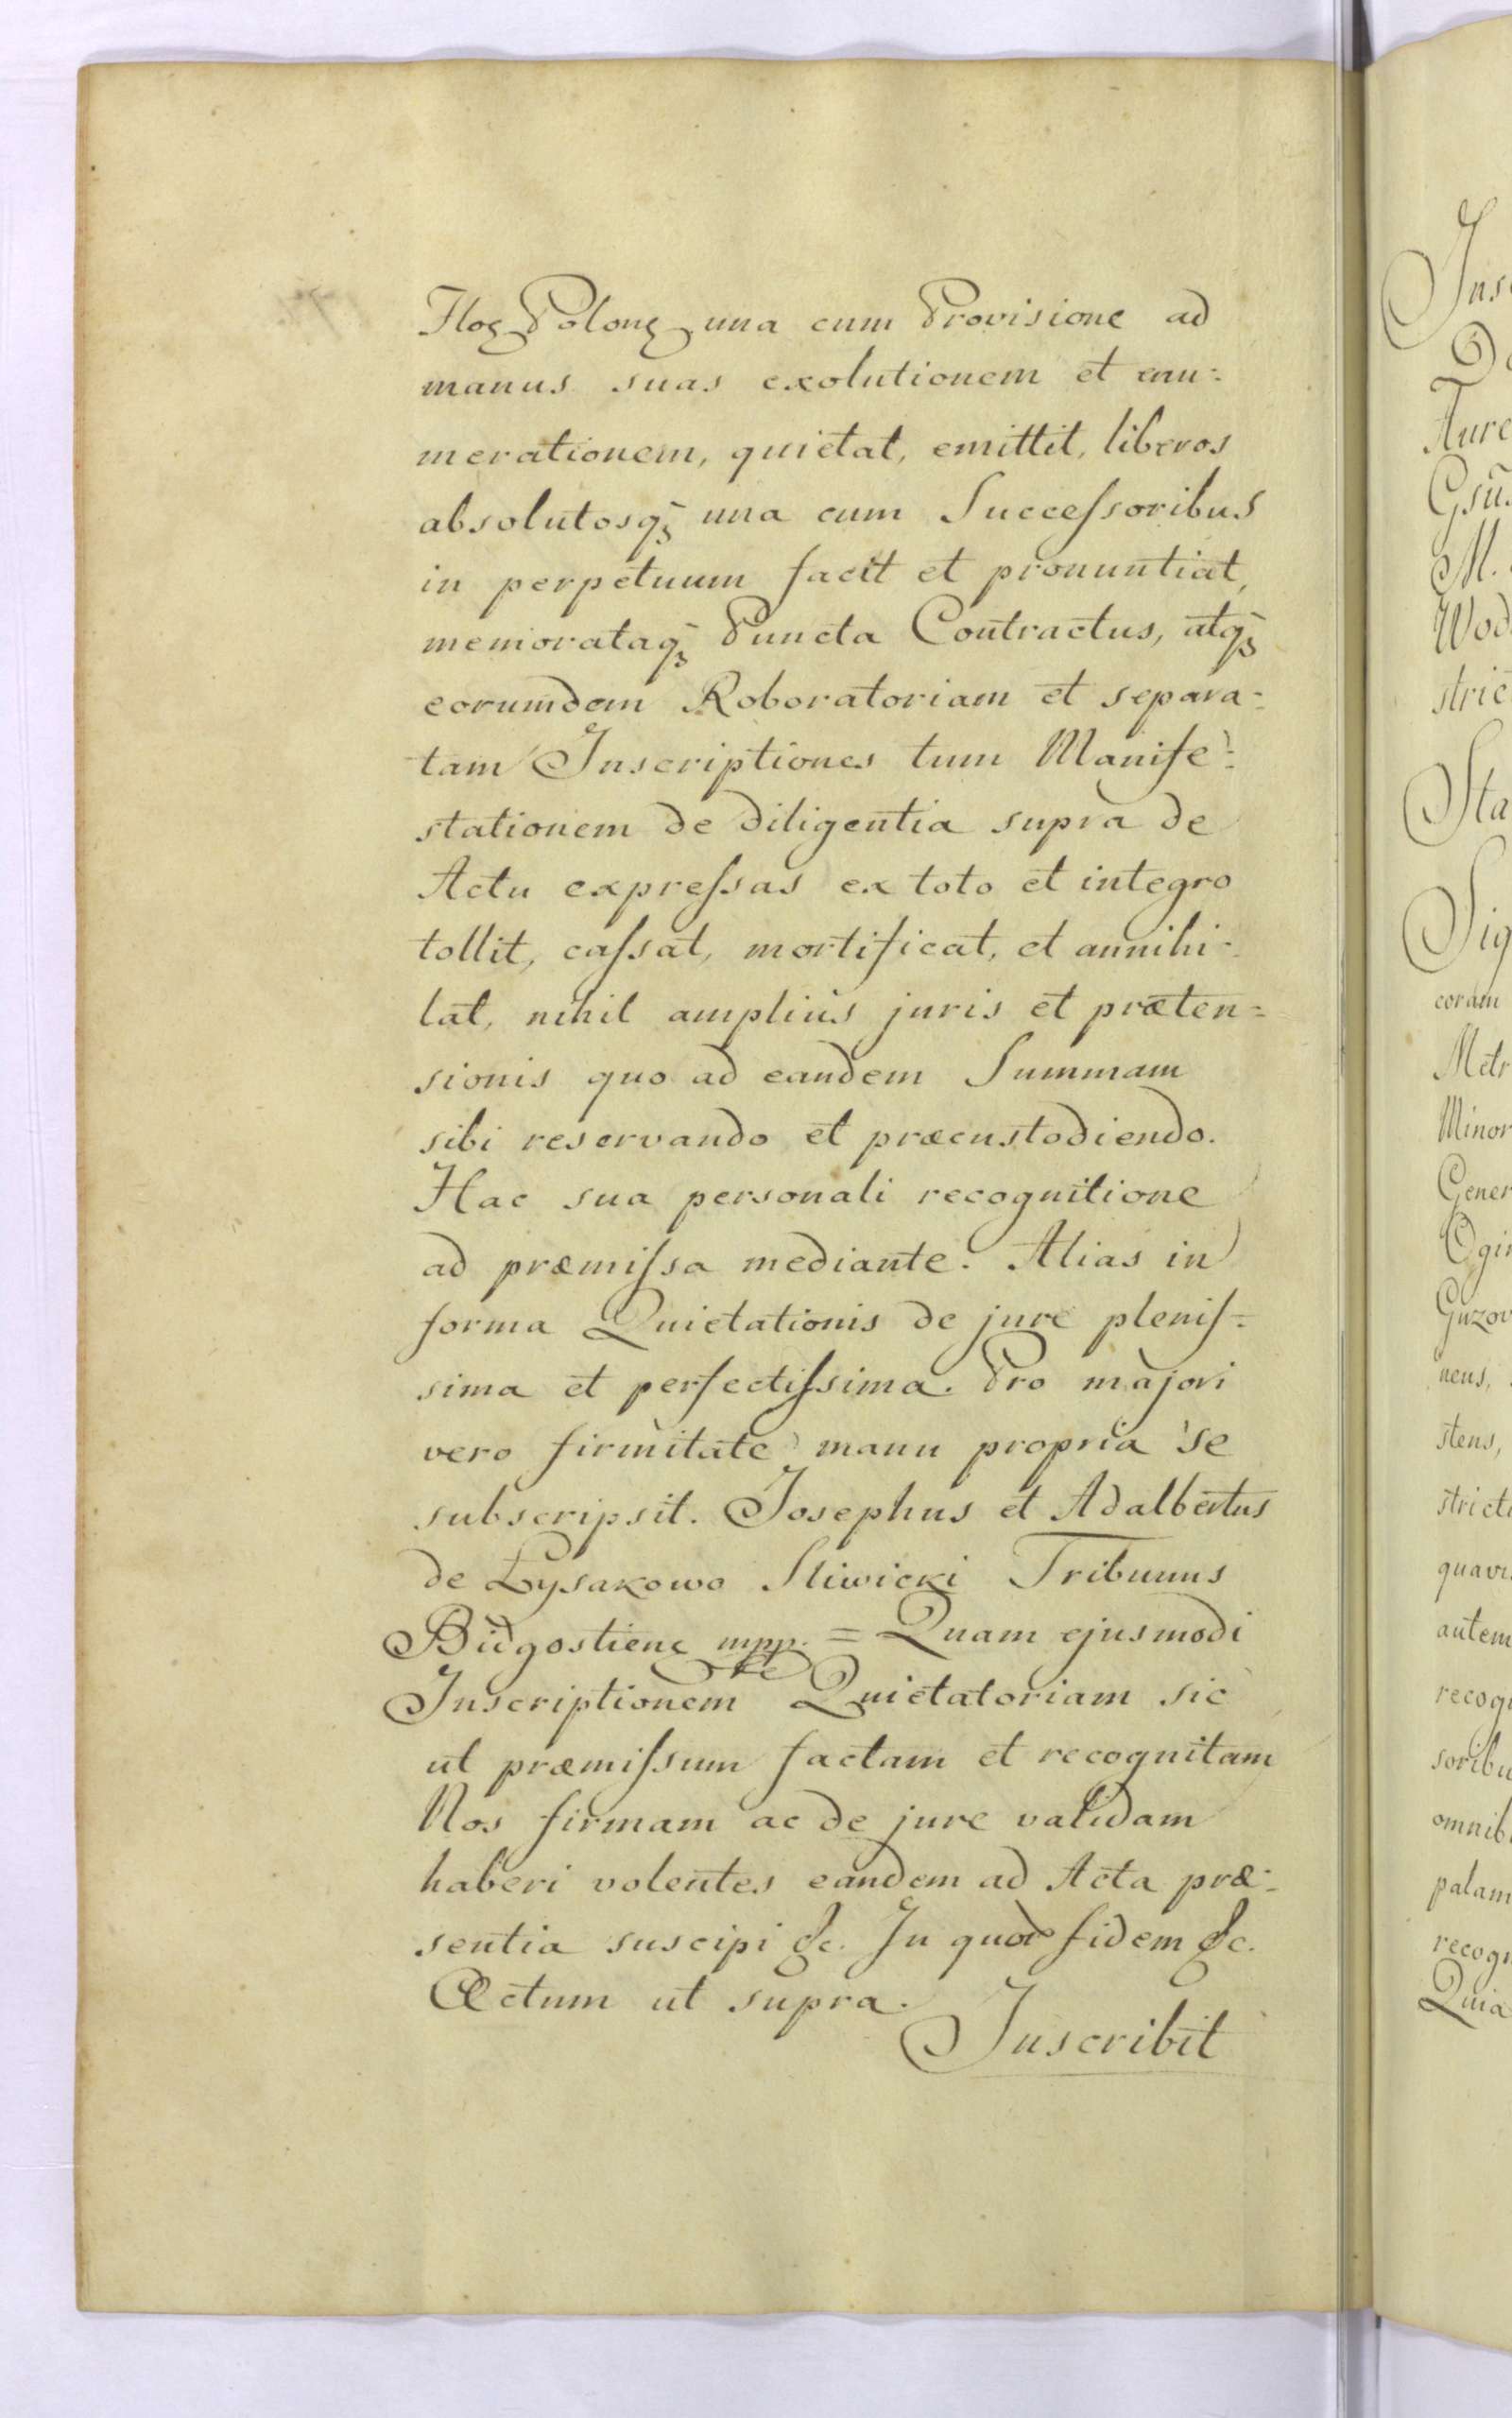 Floꝫ Polonꝫ una cum Provisione ad
manus suas exolutionem et enu-
merationem, quietat, emittit, liberos
absolutosqꝫ una cum Succeſsoribus
in perpetuum facit et pronuntiat,
memorataqꝫ Puncta Contractus, atqꝫ
eorumdem Roboratoriam et separa-
tam Inscriptiones tum Manife-
stationem de diligentia supra de
Actu expreſsas ex toto et integro
tollit, caſsat, mortificat, et annihi-
lat, nihil amplius juris et præten-
sionis quo ad eandem Summam
sibi reservando et præcustodiendo.
Hac sua personali recognitione
ad præmiſsa mediante. Alias in
forma Quietationis de jure pleniſ-
sima et perfectiſsima. Pro majori
vero firmitate manu propria se
subscripsit. Josephus et Adalbertus
de Łysakowo Sliwicki Tribunus
Bidgostienꝫ mpp. = Quam ejusmodi
Inscriptionem Quietatoriam sic
ut præmiſsum factam et recognitam
Nos firmam ac de jure validam
haberi volentes eandem ad Acta præ-
sentia suscipi &c. In quod fidem &c.
Actum ut supra.
Inscribit
Ins
Aure
M.
Wod
stric
Sta
Sig
coram
Metr
Minor
Gener
Ogi
Guzov
neus,
stens,
stricti
quavi
autem
recog
soribu
omnib
palam
recog
Quia